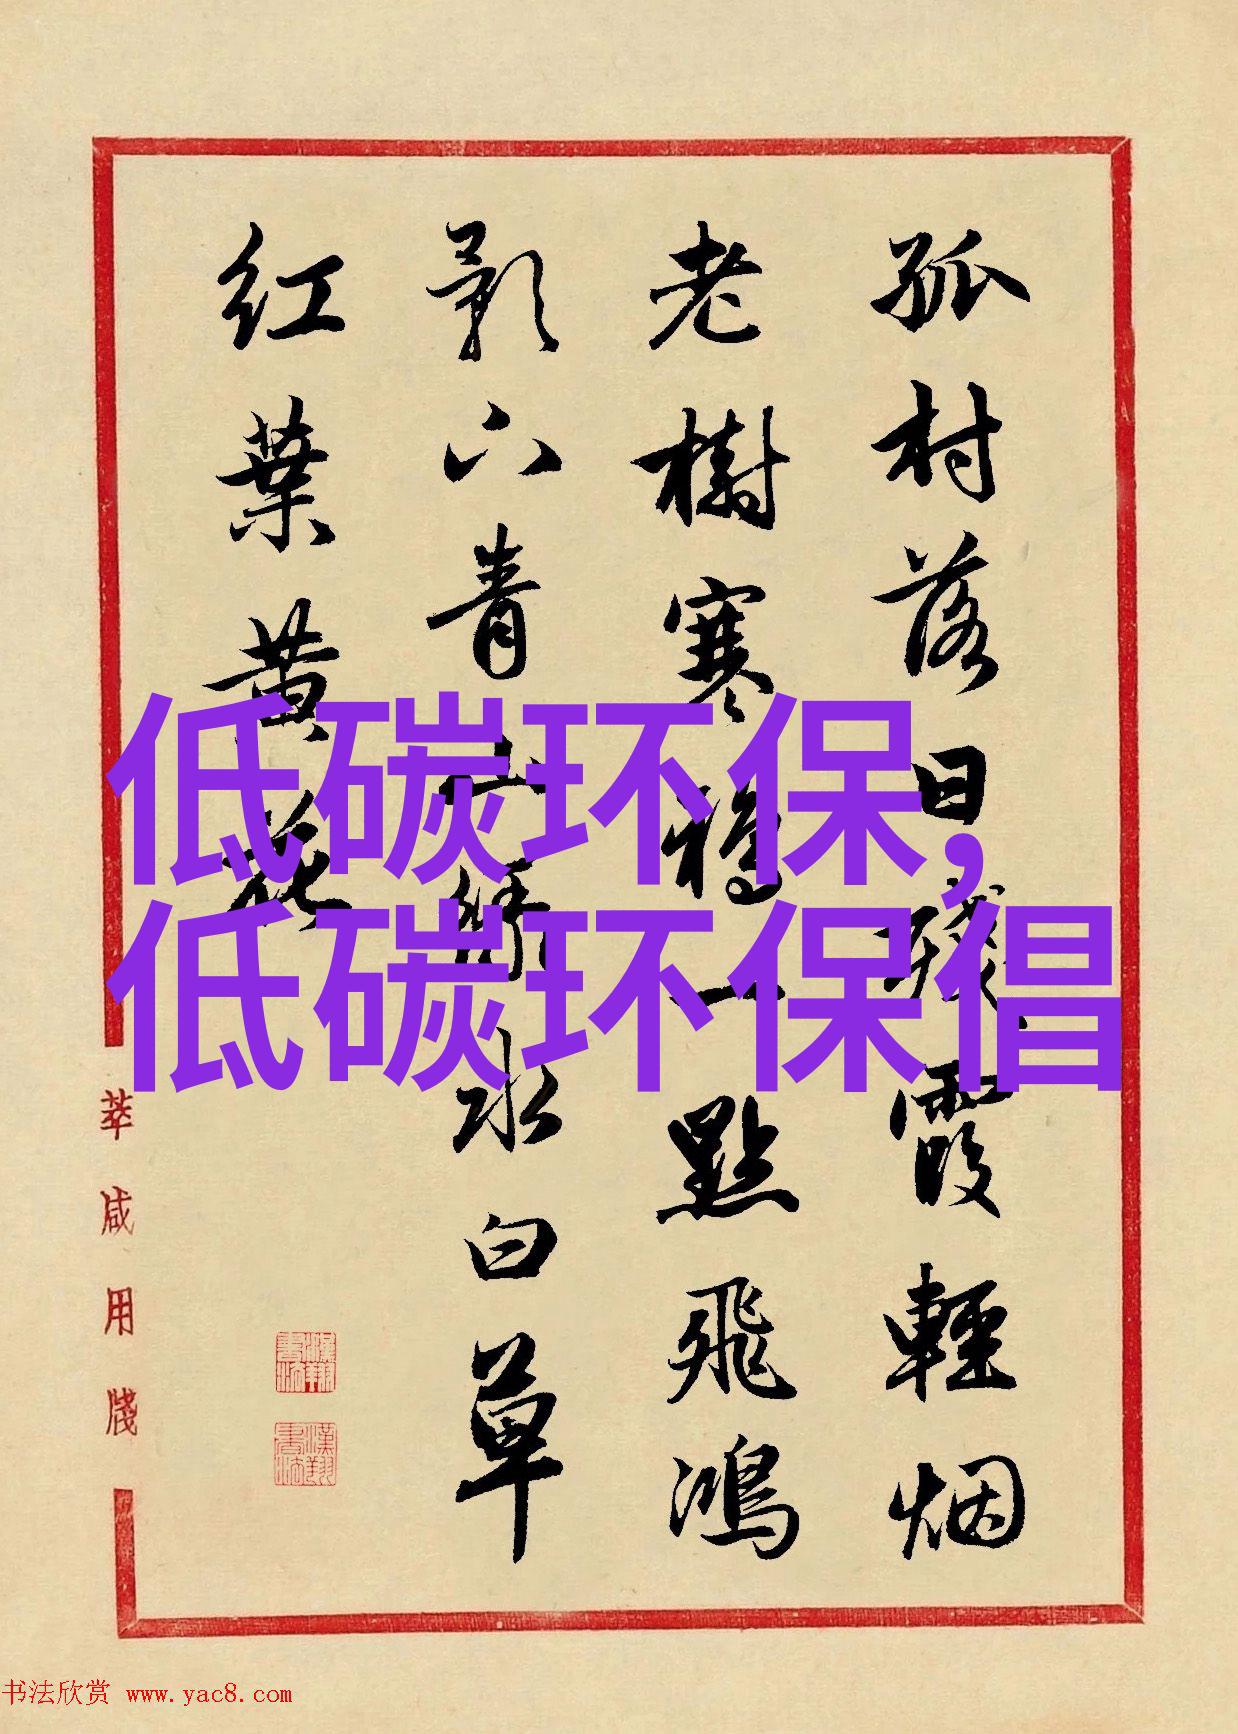 孤村落日殘霞輕烟
老樹寒鴉一點飛鴻
影下青山綠水白草
紅葉黃花
低碳环保,
低碳环保倡
萃咸用牋
书法欣赏 www.yac8.com